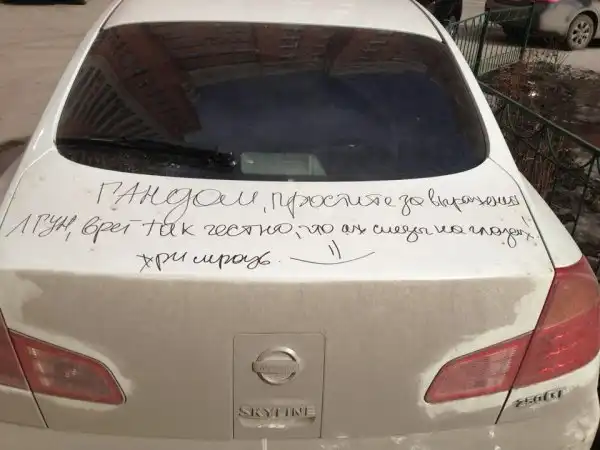 ГАНДОМ, простите за выражение
ЛГУН, врёт так честно, что аж слёзы на глазах!
три мразь. :)
NISSAN
SKYLINE
250GT